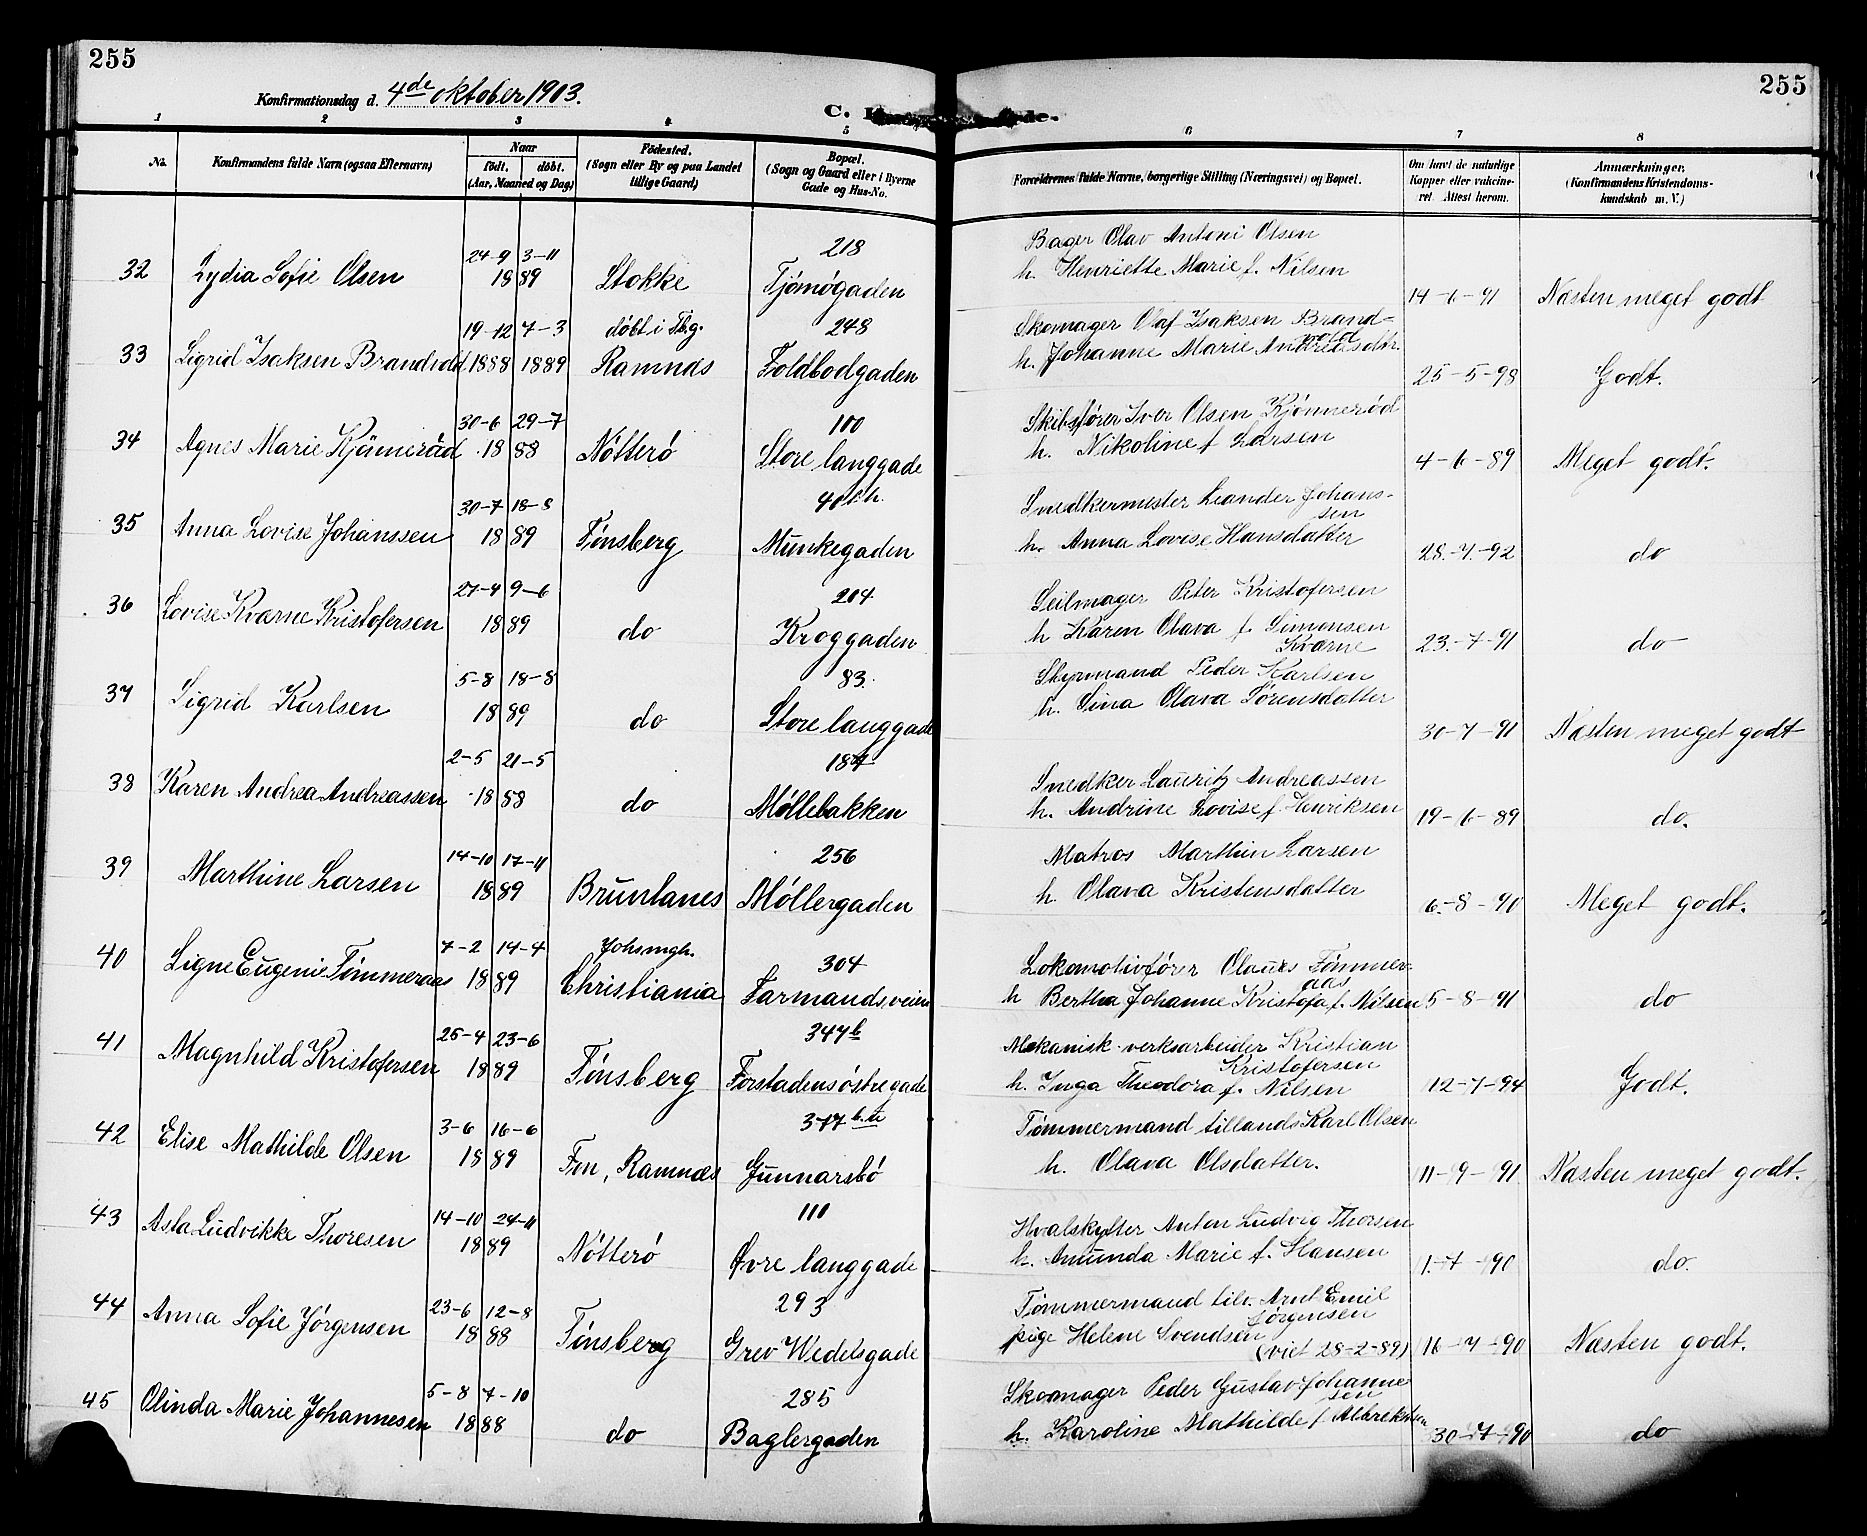 255
255
Konfirmationsdag d. 4de oktober 1903.
C.
1 2 3 4 5 6 7 8
No.
Konfirmandens fulde Navn (ogsaa Efternavn)
Naar
født. døbt.
(Aar, Maaned og Dag)
Fødested.
(Sogn eller By og paa Landet
tillige Gaard)
Bopæl.
(Sogn og Gaard eller i Byerne
Gade og Hus-No.
Forældrenes fulde Navne, borgerlige Stilling (Næringsvei) og Bopæl.
Om havt de naturlige
Kopper eller vakcine-
ret. Attest herom.
Anmærkninger.
(Konfirmandens Kristendoms-
kundskab m. V.)
24-9 3-11 218 Bager Olav Antoni Olsen
32 Lydia Sofie Olsen 1889 Stokke Tjømøgaden h. Henriette Marie f. Nilsen 14-6-91 Næsten meget godt
19-12 7-3 døbt i Tbg. 248 Skomager Olaf Isaksen Brand-
vold
33 Sigrid Isaksen Brandvold 1888 1889 Ramnæs Toldbodgaden h. Johanne Marie Andreasdtr. 25-5-98 Godt.
30-6 29-7 100 Skibsfører Iver Olsen Kjønnerød
34 Agnes Marie Kjønnerød 1888 Nøtterø Store langgade h. Nikoline f Larsen 4-6-89 Meget godt.
30-7 18-8 40 b.h. Snedkermester Leander Johans-
sen
35 Anna Lovise Johanssen 1889 Tønsberg Munkegaden h. Anna Lovise Hansdatter 28-7-92 do
27-4 9-6 204 Seilmager Peter Kristofersen
36 Lovise Kværne Kristofersen 1889 do Kroggaden h Karen Olava f. Simonsen
Kværne 23-7-91 do
5-8 18-8 83. Styrmand Peder Karlsen
37 Sigrid Karlsen 1889 do Store langgade h. Sina Olava Sørensdatter 30-7-91 Næsten meget godt
2-5 21-5 187 Snedker Lauritz Andreassen
38 Karen Andrea Andreassen 1888 do Møllebakken h. Andrine Lovise f. Henriksen 19-6-89 do.
14-10 17-11 256 Matros Marthin Larsen
39 Marthine Larsen 1889 Brunlanes Møllergaden h. Olava Kristensdatter 6-8-90 Meget godt.
7-2 14-4 Johsmgh. 304 Lokomotivfører Olaues Tømmer-
aas
40 Signe Eugenie Tømmeraas 1889 Christiania Farmandsveien h Bertha Johanne Kristofa f. Nilsen 5-8-91 do
25-4 23-6 347 b Mekanisk verksarbeider Kristian
Kristofersen
41 Magnhild Kristofersen 1889 Tønsberg Forstadens østregade h. Inga Theodora f. Nilsen 12-7-94 Godt.
3-6 16-6 377 Tømmermand tillands Karl Olsen
42 Elise Mathilde Olsen 1889 Fon, Ramnæs Gunnarsbø h. Olava Olsdatter. 11-9-91 Næsten meget godt.
14-10 24-11 110 Hvalskytter Anton Ludvig Thorsen
43 Asta Ludvikke Thoresen 1889 Nøtterø Øvre langgade h. Amunda Marie f. Hansen 1-7-90 do.
23-6 12-8 293 Tømmermand tilv. Arnt Emil
Jørgensen
44 Anna Sofie Jørgensen 1888 Tønsberg Grev Wedelsgade pige Helene Svendsen
(viet 28-2-89) 16-7-90 Næsten godt.
5-8 7-10 285 Skomager Peder Gustav Johanne
sen
45 Olinda Marie Johannesen 1888 do Baglergaden h. Karoline Mathilde f. Albrektsen 30-7-90 do